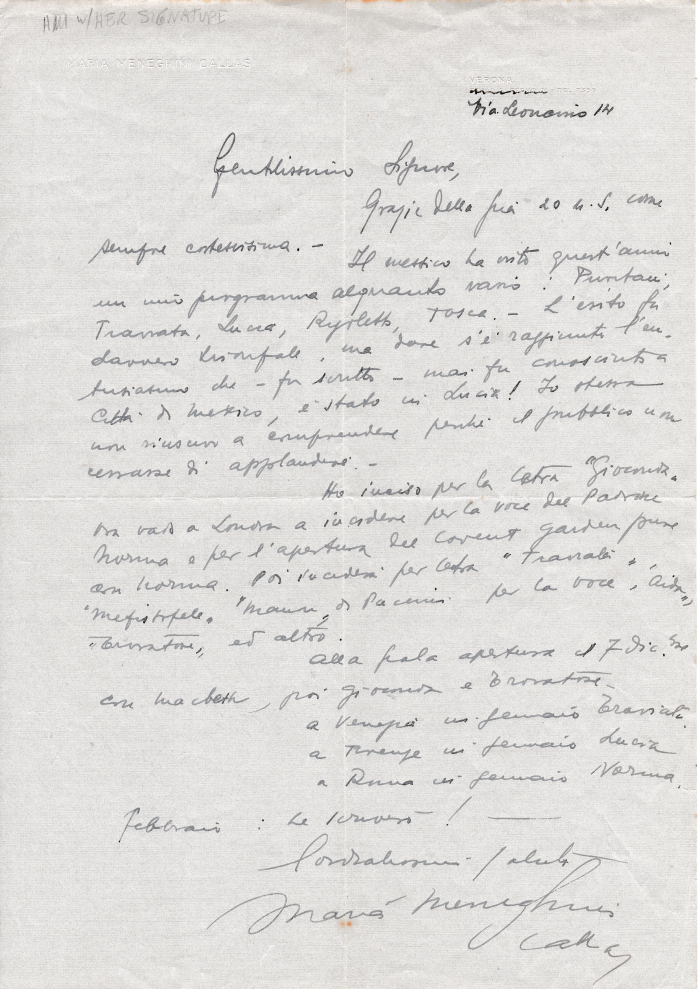 AM W/HER SIGNATURE
MARIA MENEGHINI CALLAS
VERONA
Via Leoncino 14
Gentilissimo Signore,
Grazie della sua 20 u.s. come
sempre cortesissima. -
Il messico ha visto quest'anno
un mio programma alquanto vario : Puritani,
Traviata, Lucia, Rigoletto, Tosca. - L'esito fu
davvero trionfale, ma dove s'è raggiunto l'en-
tusiasmo che - fu scritto - mai fu conosciuto a
Città di Mexico, è stato in Lucia! Io stessa
non riuscivo a comprendere perché il pubblico non
cessasse di applaudire. -
Ho inciso per la Cetra "Gioconda"
ora vado a Londra a incidere per la voce del Padrone
Norma e per l'apertura del Covent garden pure
con Norma. Poi inciderò per Cetra "Traviata",
"Mefistofele" "Manon" di Puccini per la voce, "Aida",
"Trovatore", ed altro.
Alla Scala apertura il 7 dic.
con Macbeth, poi Gioconda e Trovatore.
a Venezia in gennaio Traviata.
a Firenze in gennaio Lucia
a Roma in gennaio Norma.
febbraio : Le scriverò ! —
Cordialissimi saluti
Maria Meneghini
Callas